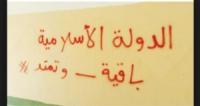 الدولة الأسلامية
باقية – وتمتد